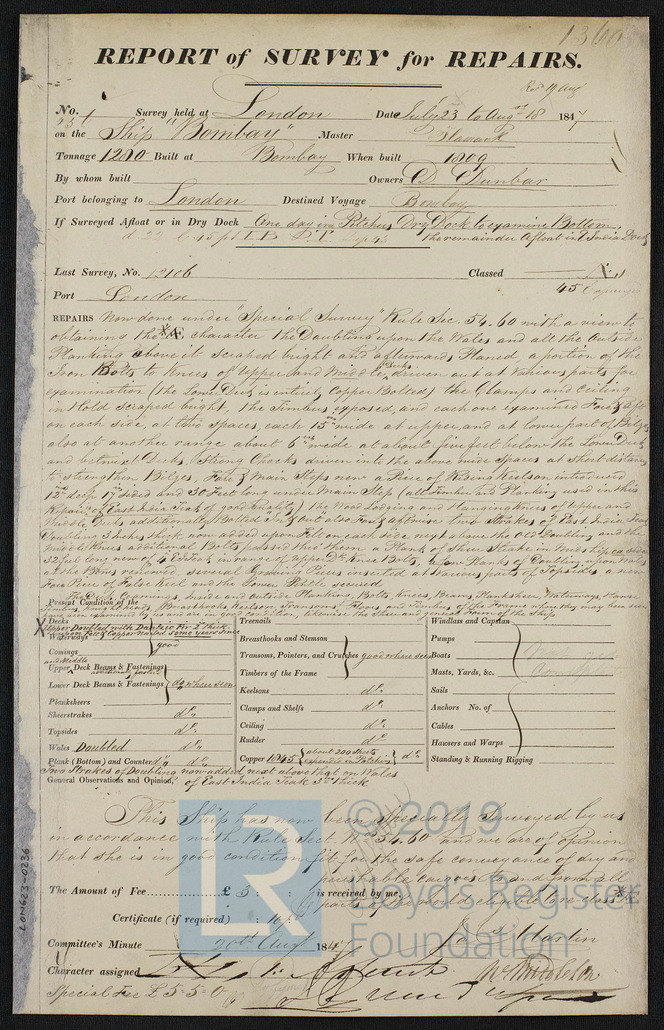 1360
REPORT of SURVEY for REPAIRS.
Recd 19 Aug
No. Survey held at London Date July 23 to Augst 18 1847
on the Ship "Bombay" Master
Tonnage 1280 Built at Bombay When built 1809
By whom built Owners D. Dunbar
Port belonging to London Destined Voyage Bombay
If Surveyed Afloat or in Dry Dock One day in Pitchers Dry Dock to examine Bottom,
the remainder Afloat in E India Dock
Last Survey, No. 12106 Classed
Port London 45
REPAIRS Now done under "Special Survey" Rule Sec. 54.60 with a view to
obtaining the *Æ character the Doubling upon the Wales and all the Outside
Planking above it scraped bright and afterwards Planed, a portion of the
Iron Bolts to Knees of Upper and Middle Decks driven out at various parts for
examination (the Lower Deck is entirely Copper Bolted) the Clamps and Ceiling
in Hold scraped bright, the Timbers exposed, and each one examined Fore & Aft
on each side, at two spaces, each 15 in wide at upper, and at lower part of Bilges
also at another range about 6 in wide at about five feet below the Lower Deck
and betwixt Decks, Strong Chocks driven into the above wide Spaces at Short distances
to strengthen Bilges, Fore & Main Steps new a Piece of Rising Keelson introduced
12 in deep 17 sided and 30 Feet long under Main Step (all Timber and Planking used in this
Repair of East India Teak of good quality) the Wood Lodging and Hanging Knees of Upper and
Middle Decks additionally Bolted in & out also Fore & aftwise two Strakes of East India Teak
Doubling 3 Inch thick now added upon Felt on each side next above the old Doubling and the
Middle Knees additional Bolts passed thro' them a Plank of Shear Strake in Midships ea side
32 feet long new of
the Bows renewed several Graving Pieces inserted at various parts of Topsides a new
Fore Piece of False Keel and the Lower Pintle secured
Present Condition of the The Deck, Comings, Inside and outside Planking, Bolts, Knees, Beams, Plansheer, Waterways, Hawse
Timbers, Breasthooks, Keelson, Transoms,
Decks
X Upper Doubled with Dantzic Fir 2 thick
upon Felt & Copper nailed some years since
Waterways
Comings } good
Upper and Middle Deck Beams & Fastenings additionally fastened
Lower Deck Beams & Fastenings do where seen
Planksheers
Sheerstrakes do
Topsides do
Wales Doubled do
Plank (Bottom) and Counter do do
Treenails
Breasthooks and Stemson
Transoms, Pointers, and Crutches good where seen
Timbers of the Frame
Keelsons do
Clamps and Shelfs do
Ceiling do
Rudder do
Copper 1845 { about 200 Sheets expended in Patching } do
Windlass and Capstan
Pumps
Boats
Masts, Yards, &c.
Sails
Anchors No. of
Cables
Hawsers and Warps
Standing & Running Rigging
Two Strakes of Doubling now added next above that on Wales
General Observations and Opinion, of East India Teak 3 in thick
This Ship has now been Specially Surveyed by us
in accordance with Rule Sect. No 54.60 and we are of opinion
that she is in good condition fit for the safe conveyance of dry and
perishable cargoes to and from all
The Amount of Fee £ 5 : : is received by me, parts of the world eligible to be class'd *Æ
Certificate (if required) : 10 :
Committee's Minute 20th Augt 1847
J. Martin
Character assigned
Special Fee £ 5-5-0
W. Middleton
LON623-0236
LR
© 2019
Lloyd's Register
Foundation